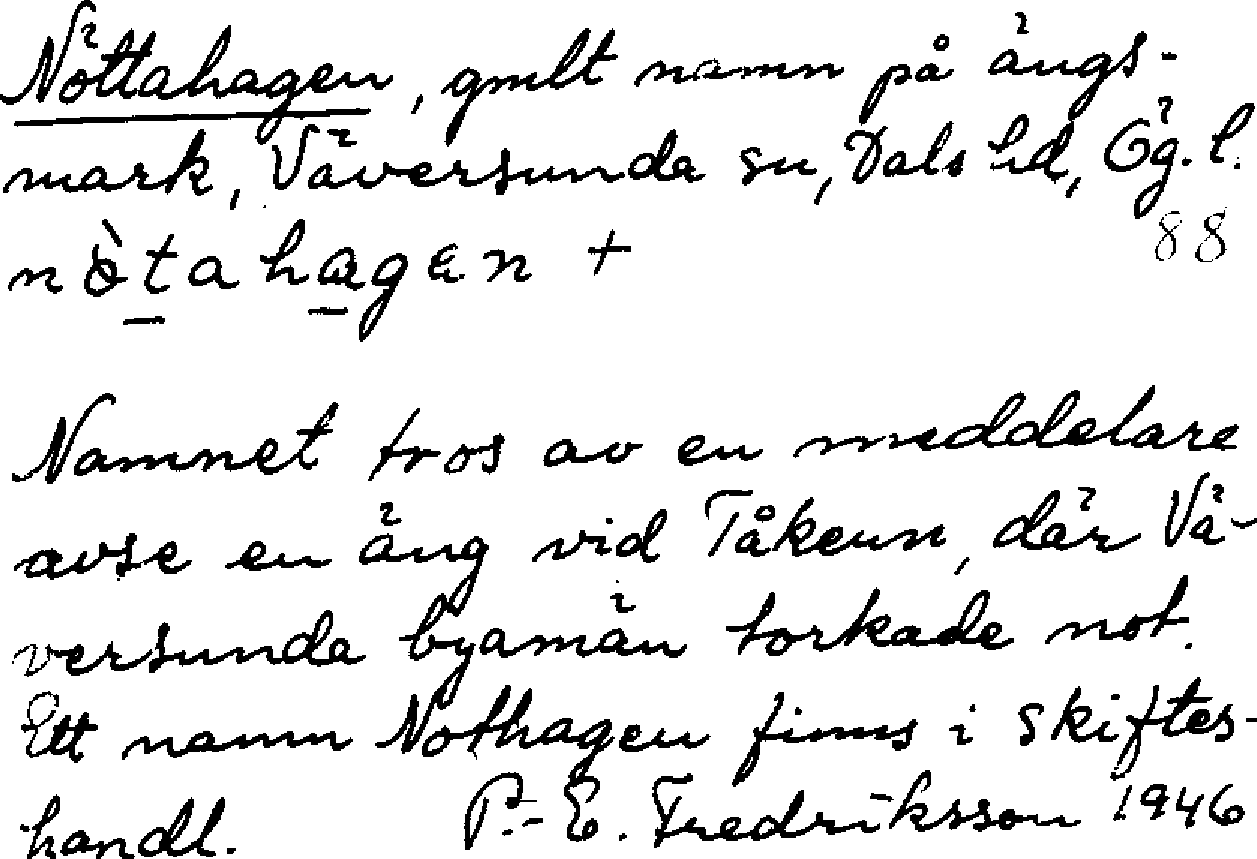 Nöttahagen, gmlt namn på ängs-
mark, Väversunda sn, Dals hd, Ög. l.
88
nò̈tahagen +
Namnet tros av en meddelare
avse en äng vid Tåkern, där Vä-
versunda byamän torkade not.
Ett namn Nothagen finns i skiftes-
handl. P.-E. Fredriksson 1946